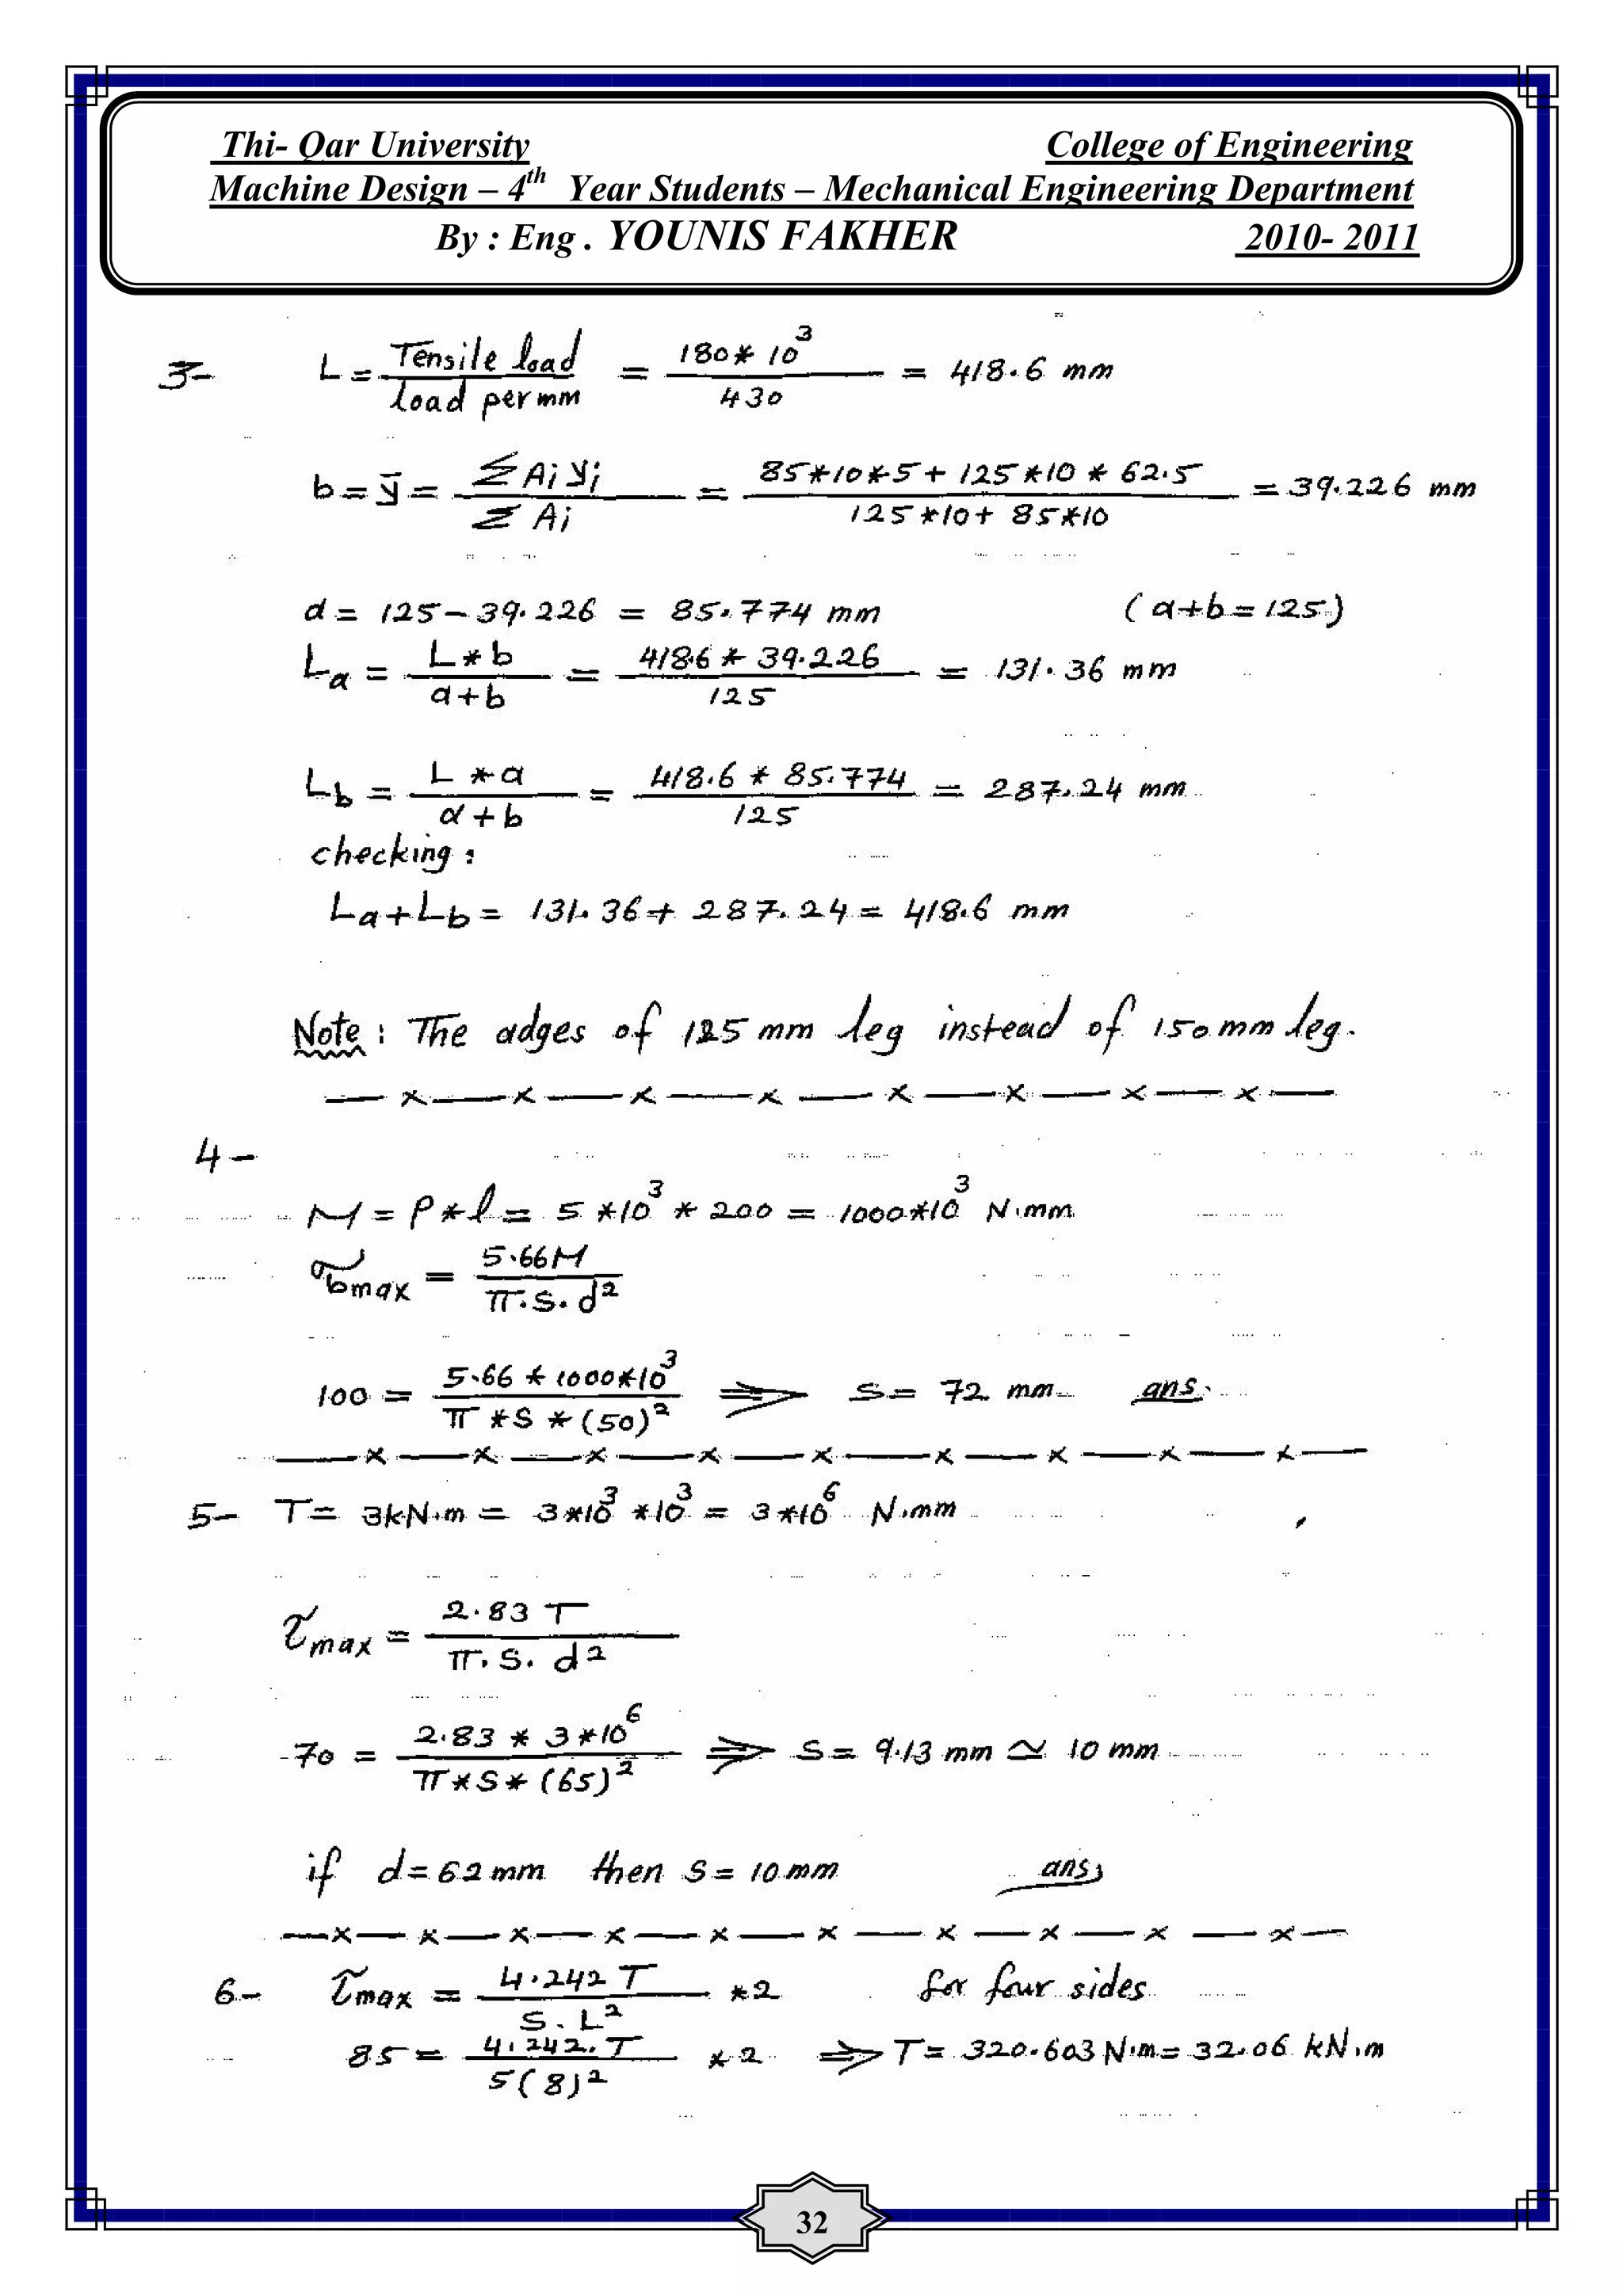 Thi- Qar University College of Engineering
Machine Design – 4th Year Students – Mechanical Engineering Department
By : Eng . YOUNIS FAKHER 2010- 2011
3- L = Tensile load / load per mm = 180 * 10^3 / 430 = 418.6 mm
b = ȳ = Σ Ai yi / Σ Ai = 85*10*5 + 125*10 * 62.5 / 125*10 + 85*10 = 39.226 mm
a = 125 - 39.226 = 85.774 mm (a+b = 125)
La = L * b / a + b = 418.6 * 39.226 / 125 = 131.36 mm
Lb = L * a / a + b = 418.6 * 85.774 / 125 = 287.24 mm
checking :
La + Lb = 131.36 + 287.24 = 418.6 mm
Note : The adges of 125 mm leg instead of 150 mm leg.
— x — x — x — x — x — x — x — x —
4 -
M = P * l = 5 * 10^3 * 200 = 1000*10^3 N.mm
σbmax = 5.66 M / π . S . d^2
100 = 5.66 * 1000*10^3 / π * S * (50)^2 ⇒ S = 72 mm ans.
— x — x — x — x — x — x — x — x — x —
5- T = 3 kN.m = 3*10^3 *10^3 = 3 *10^6 N.mm
τmax = 2.83 T / π . S . d^2
70 = 2.83 * 3 *10^6 / π * S * (65)^2 ⇒ S = 9.13 mm ≃ 10 mm
if d = 62 mm then S = 10 mm ans,
— x — x — x — x — x — x — x — x — x — x —
6- τmax = 4.242 T / S . L^2 *2 for four sides
85 = 4.242 . T / 5 ( 8 )^2 *2 ⇒ T = 320.603 N.m = 32.06 kN.m
32